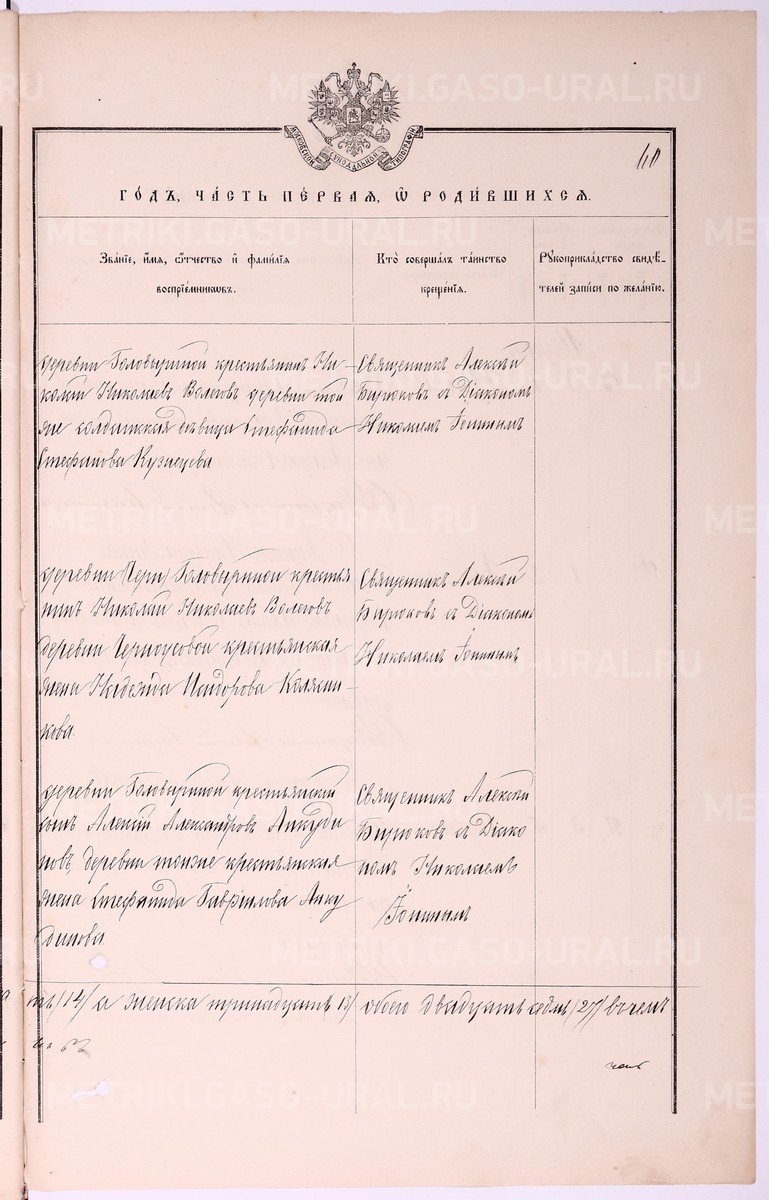 METRIKI.GASO-URAL.RU
МОСКОВСКОЙ СѴНОДАЛЬНОЙ ТИПОГРАФІИ
ГО́ДЪ, ЧА́СТЬ ПЕ́РВАЯ, Ѡ҆ РОДИ́ВШИХСѦ.
Зва́нїе, и҆́мя, ѻ҆́тчество и҆ фами́лїя
воспрїе́мникѡвъ.
Кто̀ соверша́лъ та́инство
креще́нїя.
Рꙋкоприкла́дство свидѣ́-
телей за́писи по жела́нїю.
деревни Головыриной крестьянинъ Ни-
колай Николаевъ Вологовъ деревни той
же солдатская дѣвица Стефанида
Стефанова Кузнецова
Священникъ Алексѣй
Бирюковъ съ Діакономъ
Николаемъ Іонинымъ
деревни Головыриной крестья
нинъ Николай Николаевъ Вологовъ
деревни Черноусовой крестьянская
жена Надежда Исидорова Колясни-
кова.
Священникъ Алексѣй
Бирюковъ съ Діакономъ
Николаемъ Іонинымъ
деревни Головыриной крестьянскій
сынъ Алексѣй Александровъ Анкуди
новъ, деревни тойже крестьянская
жена Стефанида Гавріилова Анку
динова.
Священникъ Алексѣй
Бирюковъ съ Діако
номъ Николаемъ
Іонинымъ
ть /14/ а женска тринадцать /13/ обоего двадцать седмь /27/ въ чемъ